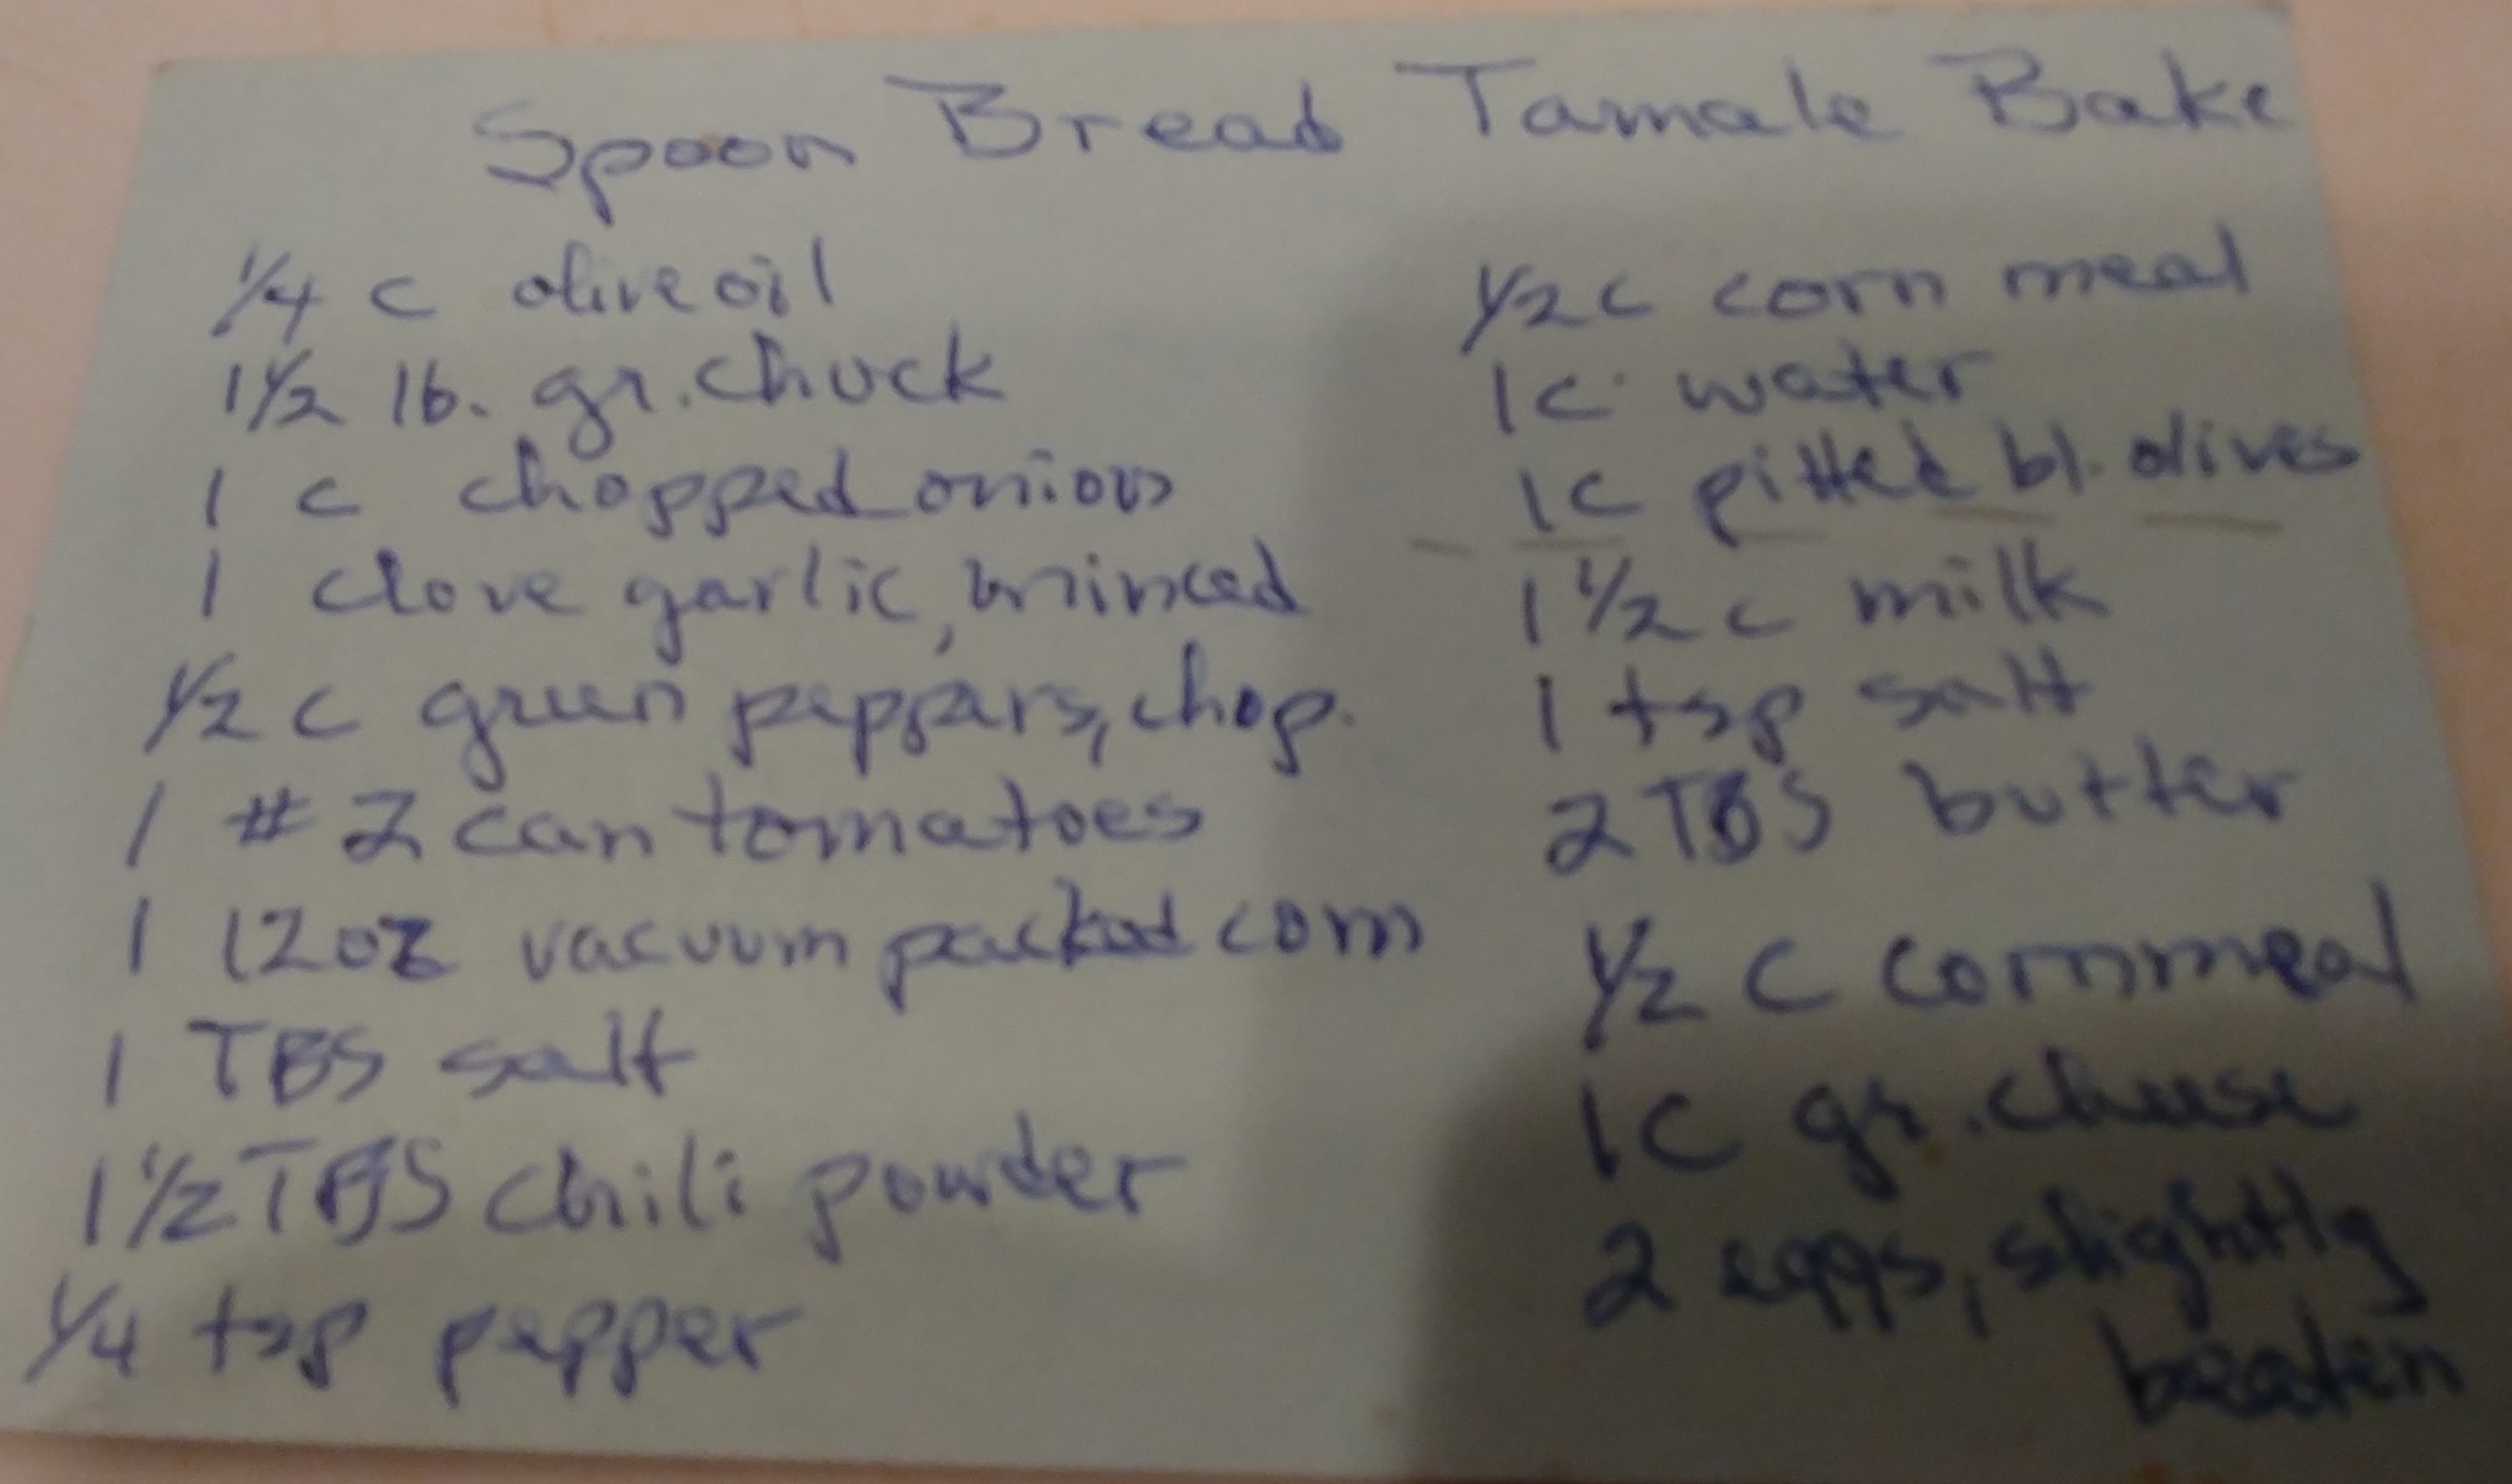 Spoon Bread Tamale Bake
1/4 c olive oil
1 1/2 lb. gr. chuck
1 c chopped onions
1 clove garlic, minced
1/2 c green peppars, chop.
1 #2 can tomatoes
1 12oz vacuum packed corn
1 TBS salt
1 1/2 TBS chili powder
1/4 tsp pepper
1/2 c corn meal
1 c water
1c pitted bl. olives
1 1/2 c milk
1 tsp salt
2 TBS butter
1/2 c cornmeal
1c gr. cheese
2 eggs, slightly
beaten